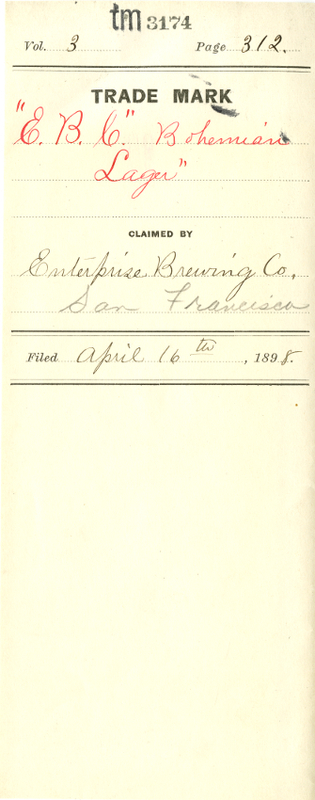 tm 3174
Vol. 3 Page 312.
TRADE MARK
"E. B. C" Bohemian
Lager"
CLAIMED BY
Enterprise Brewing Co.
San Francisco
Filed April 16th, 1898.